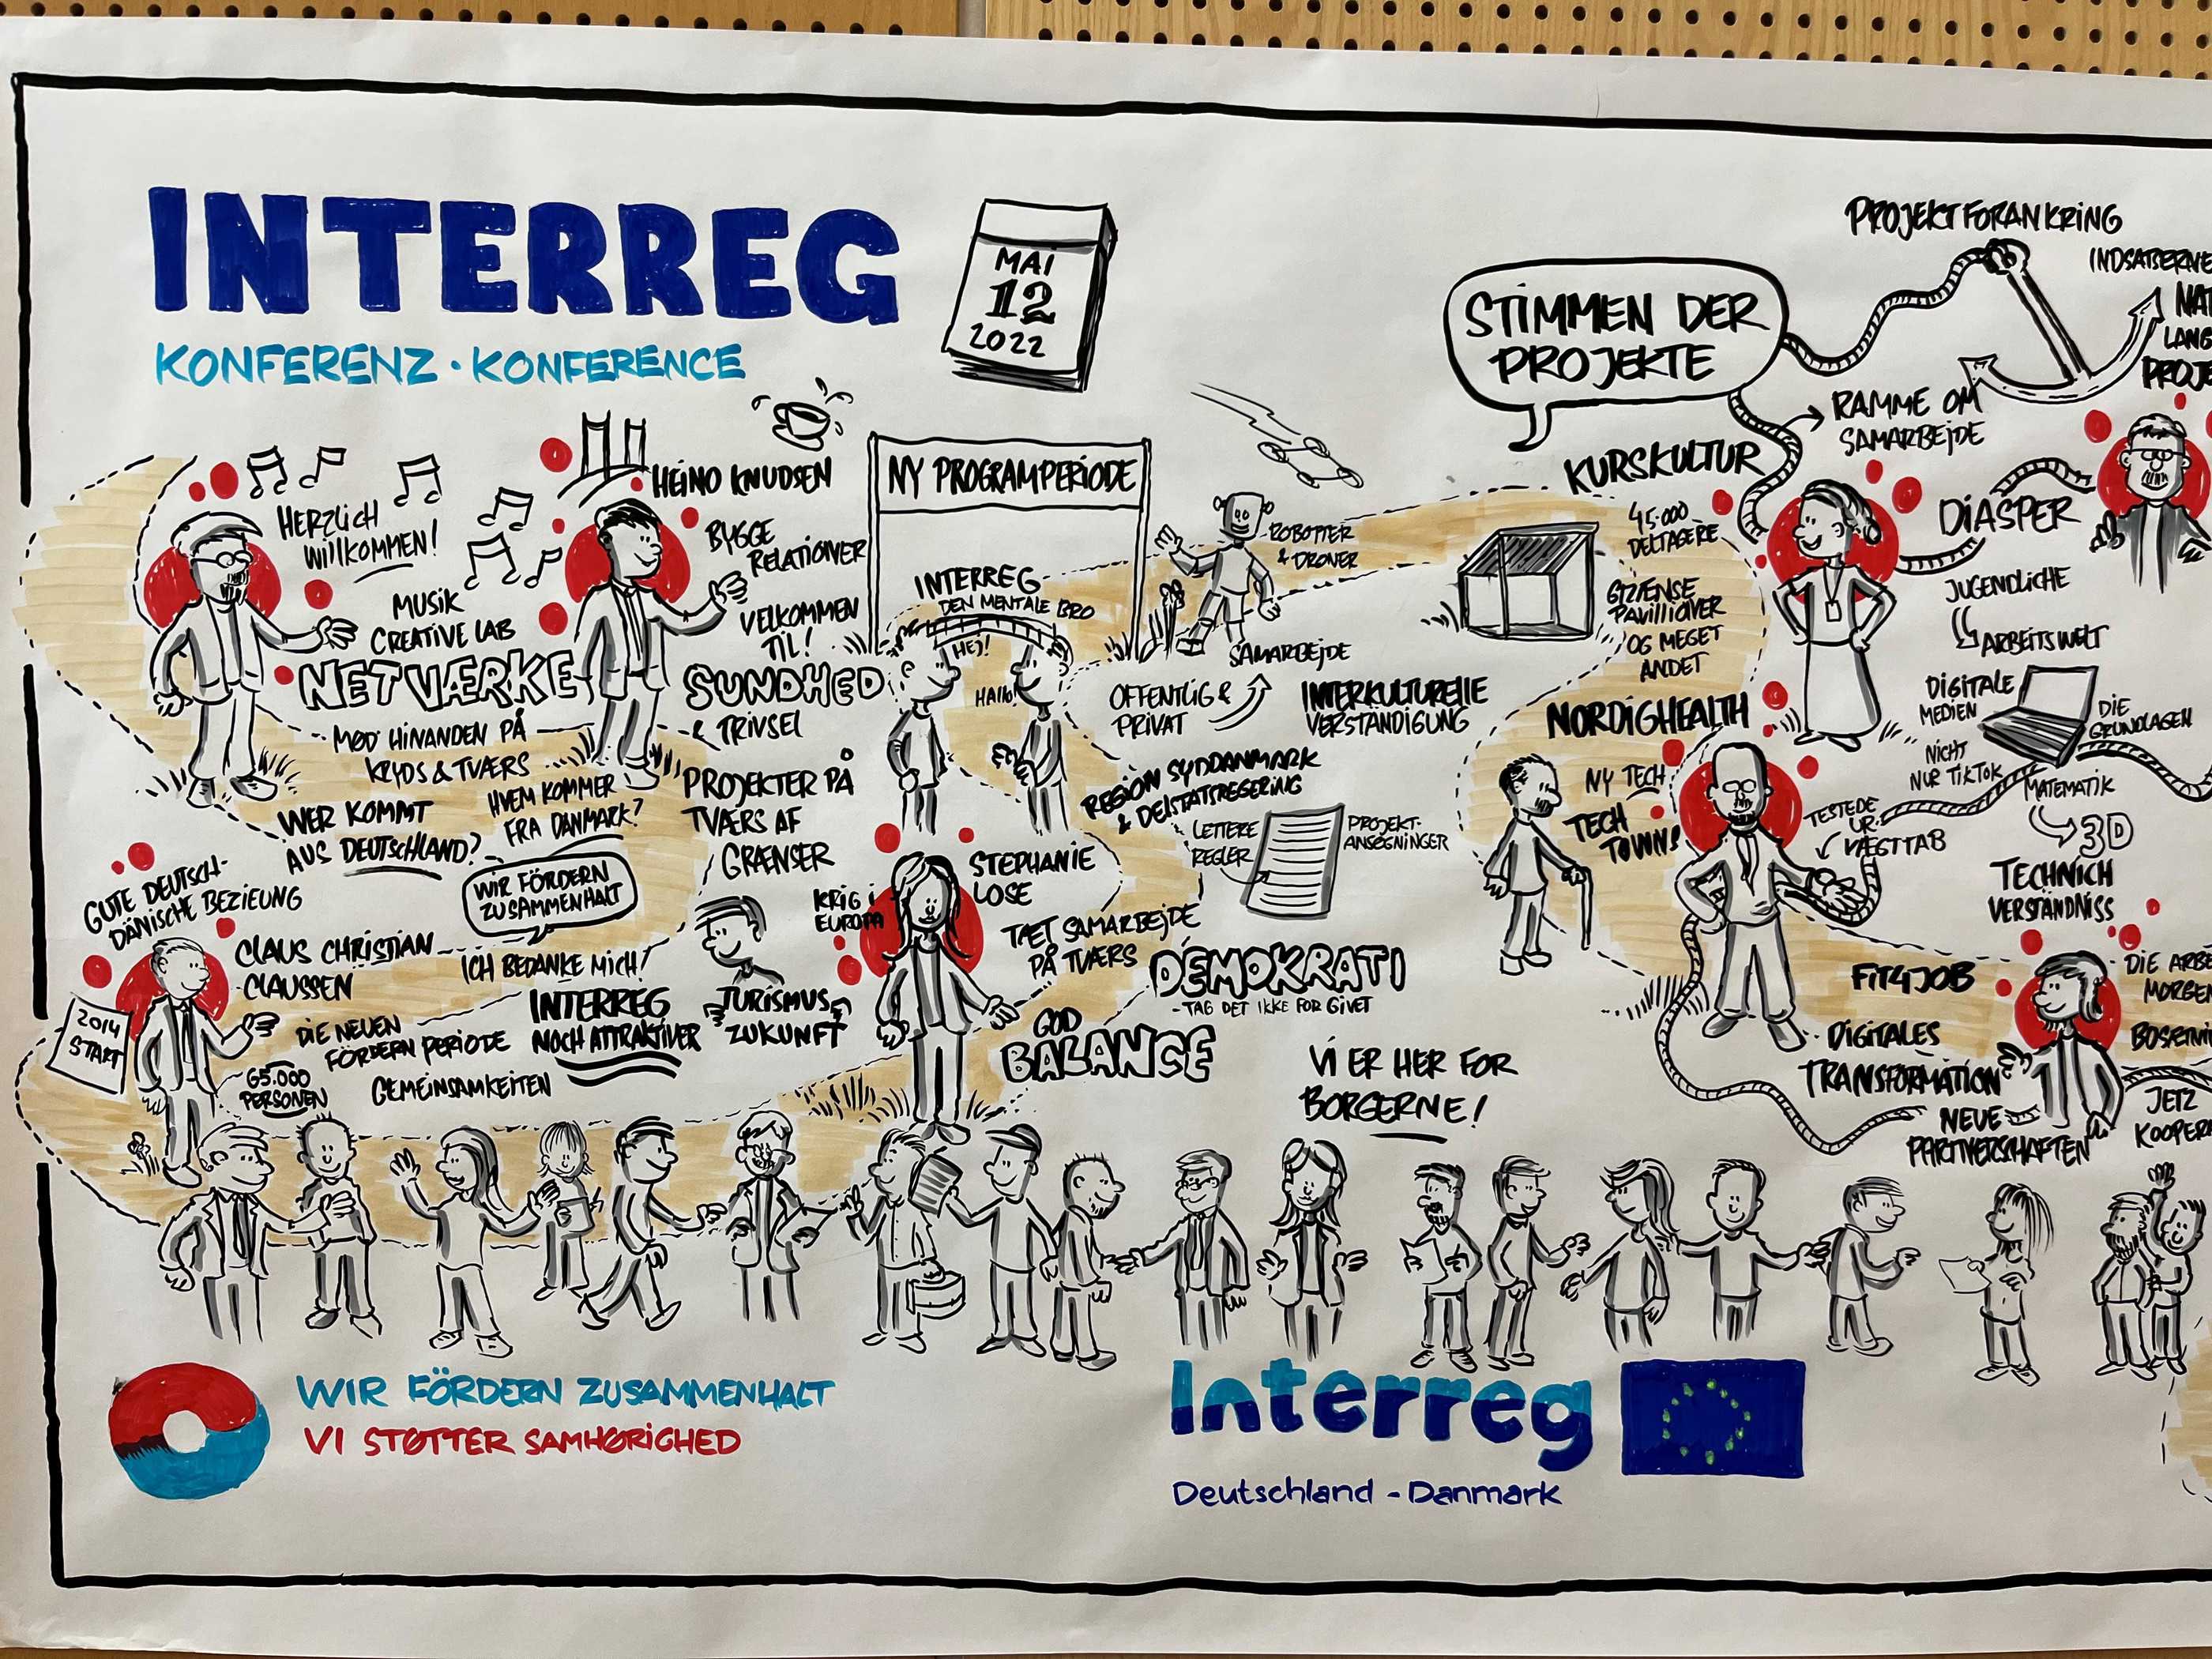 INTERREG
KONFERENZ · KONFERENCE
MAI
12
2022
HERZLICH
WILLKOMMEN!
MUSIK
CREATIVE LAB
NETVÆRKE
MØD HINANDEN PÅ
KRYDS & TVÆRS
WER KOMMT
AUS DEUTSCHLAND?
HVEM KOMMER
FRA DANMARK?
HEINO KNUDSEN
BYGGE
RELATIONER
VELKOMMEN
TIL!
SUNDHED
& TRIVSEL
PROJEKTER PÅ
TVÆRS AF
GRÆNSER
NY PROGRAMPERIODE
INTERREG
DEN MENTALE BRO
HEJ!
HALLO!
ROBOTTER
& DRONER
SAMARBEJDE
OFFENTLIG &
PRIVAT
INTERKULTURELLE
VERSTÄNDIGUNG
REGION SYDDANMARK
& DELSTATSREGERING
LETTERE
REGLER
PROJEKT-
ANSØGNINGER
GUTE DEUTSCH-
DÄNISCHE BEZIEUNG
CLAUS CHRISTIAN
CLAUSSEN
2014
START
WIR FÖRDERN
ZUSAMMENHALT
ICH BEDANKE MICH!
DIE NEUEN
FÖRDERN PERIODE
65.000
PERSONEN
GEMEINSAMKEITEN
INTERREG
NOCH ATTRAKTIVER
TURISMUS
ZUKUNFT
KRIG I
EUROPA
STEPHANIE
LOSE
TÆT SAMARBEJDE
PÅ TVÆRS
DEMOKRATI
- TAG DET IKKE FOR GIVET
GOD
BALANCE
VI ER HER FOR
BORGERNE!
STIMMEN DER
PROJEKTE
PROJEKTFORANKRING
RAMME OM
SAMARBEJDE
KURSKULTUR
45.000
DELTAGERE
GRÆNSE
PAVILLIONER
OG MEGET
ANDET
DIASPER
JUGENDLICHE
ARBEITSWELT
DIGITALE
MEDIEN
DIE
GRUNDLAGEN
NICHT
NUR TIKTOK
MATEMATIK
3D
TECHNICH
VERSTÄNDNISS
NORDIGHEALTH
NY TECH
TECH
TOWNS
TESTEDE
UR
VÆGTTAB
FIT4JOB
DIGITALES
TRANSFORMATION
NEUE
PARTNERSCHAFTEN
JETZ
WIR FÖRDERN ZUSAMMENHALT
VI STØTTER SAMHØRIGHED
Interreg
Deutschland - Danmark